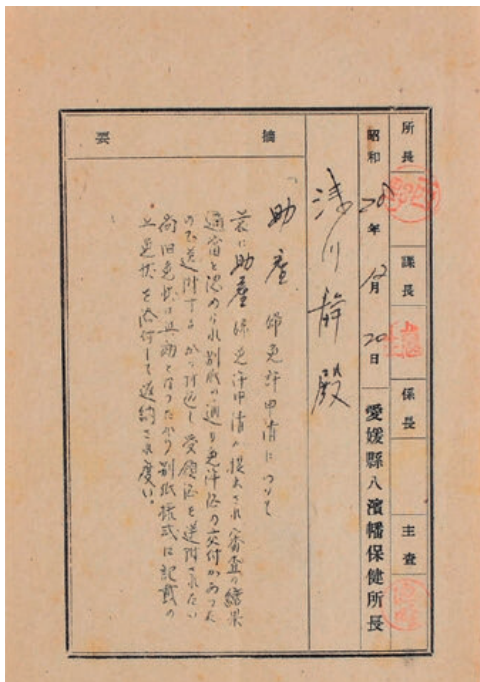 所長
課長
係長
主査
昭和28年12月20日
愛媛縣八幡濱保健所長
浅川静殿
摘要
助産婦免許申請について
曩に助産婦免許申請の提出され審査の結果
適當と認められ別紙の通り免許証の交付があった
ので送附するから折返し受領証を送附されたい
尚旧免状は無効となったから別紙様式に記載の
上免状を添付して返納され度い。